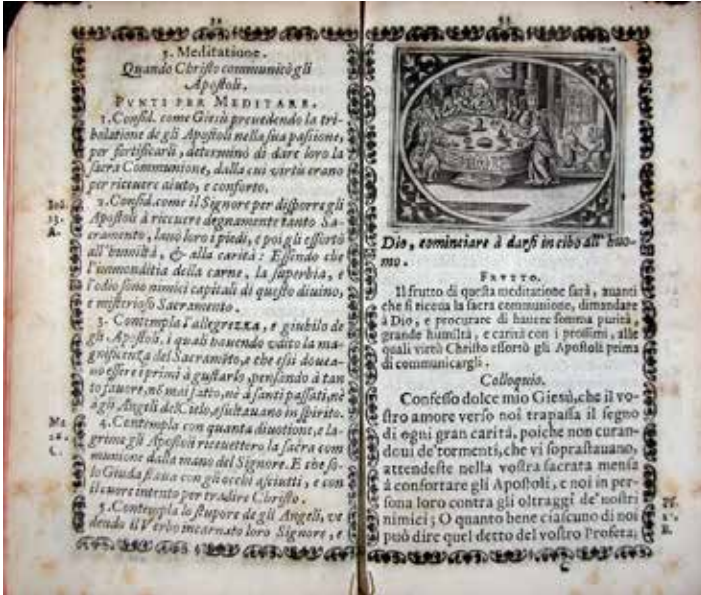 32
5. Meditatione.
Quando Christo communicò gli
Apostoli.
PVNTI PER MEDITARE.
1. Consid. come Giesù preuedendo la tri-
bolatione de gli Apostoli nella sua passione,
per fortificarli, determinò di dare loro la
sacra Communione, dalla cui vertù erano
per riceuere aiuto, e conforto.
2. Consid. come il Signore per disporre gli
Apostoli à riceuere degnamente tanto Sa-
cramento, lauò loro i piedi, e poi gli essortò
all'humiltà, & alla carità: Essendo che
l'immonditia della carne, la superbia, e
l'odio sono nimici capitali di questo diuino,
e misterioso Sacramento.
3. Contempla l'allegrezza, e giubilo de
gli Apostoli, i quali hauendo vdito la ma-
gnificenza del Sacramẽto, e che essi douea-
no essere i primi à gustarlo, pensando à tan
to fauore, nõ mai fatto, nè à santi passati, nè
à gli Angeli del Cielo, esultauano in spirito.
4. Contempla con quanta diuotione, e la-
grime gli Apostoli riceuettero la sacra com
munione dalla mano del Signore. E che so-
lo Giuda staua con gli occhi asciutti, e con
il cuore intento per tradire Christo.
5. Contempla lo stupore de gli Angeli, ve
dendo il Verbo incarnato loro Signore, e
Ioã.
13.
A.
C.
33
Dio, cominciare à darsi in cibo all'huo-
mo.
FRVTTO.
Il frutto di questa meditatione sarà, auanti
che si riceua la sacra communione, dimandare
à Dio, e procurare di hauere somma purità,
grande humiltà, e carità con i prossimi, alle
quali virtù Christo essortò gli Apostoli prima
di communicargli.
Colloquio.
Confesso dolce mio Giesù, che il vo-
stro amore verso noi trapassa il segno
di ogni gran carità, poiche non curan-
doui de' tormenti, che vi soprastauano,
attendeste nella vostra sacrata mensa
à confortare gli Apostoli, e noi in per-
sona loro contra gli oltraggi de' nostri
nimici; O quanto bene ciascuno di noi
può dire quel detto del vostro Profeta,
C